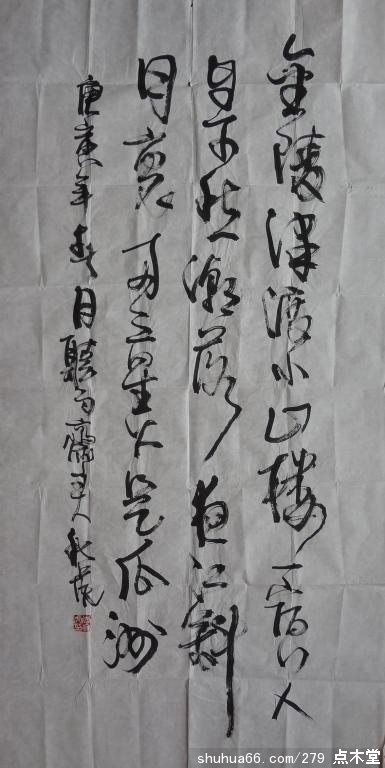 金陵津渡小山樓一宿行人
自可愁潮落夜江斜
月裏兩三星火是瓜洲
庚寅年春月聽雨齋主人
shuhua66.com/279 点木堂